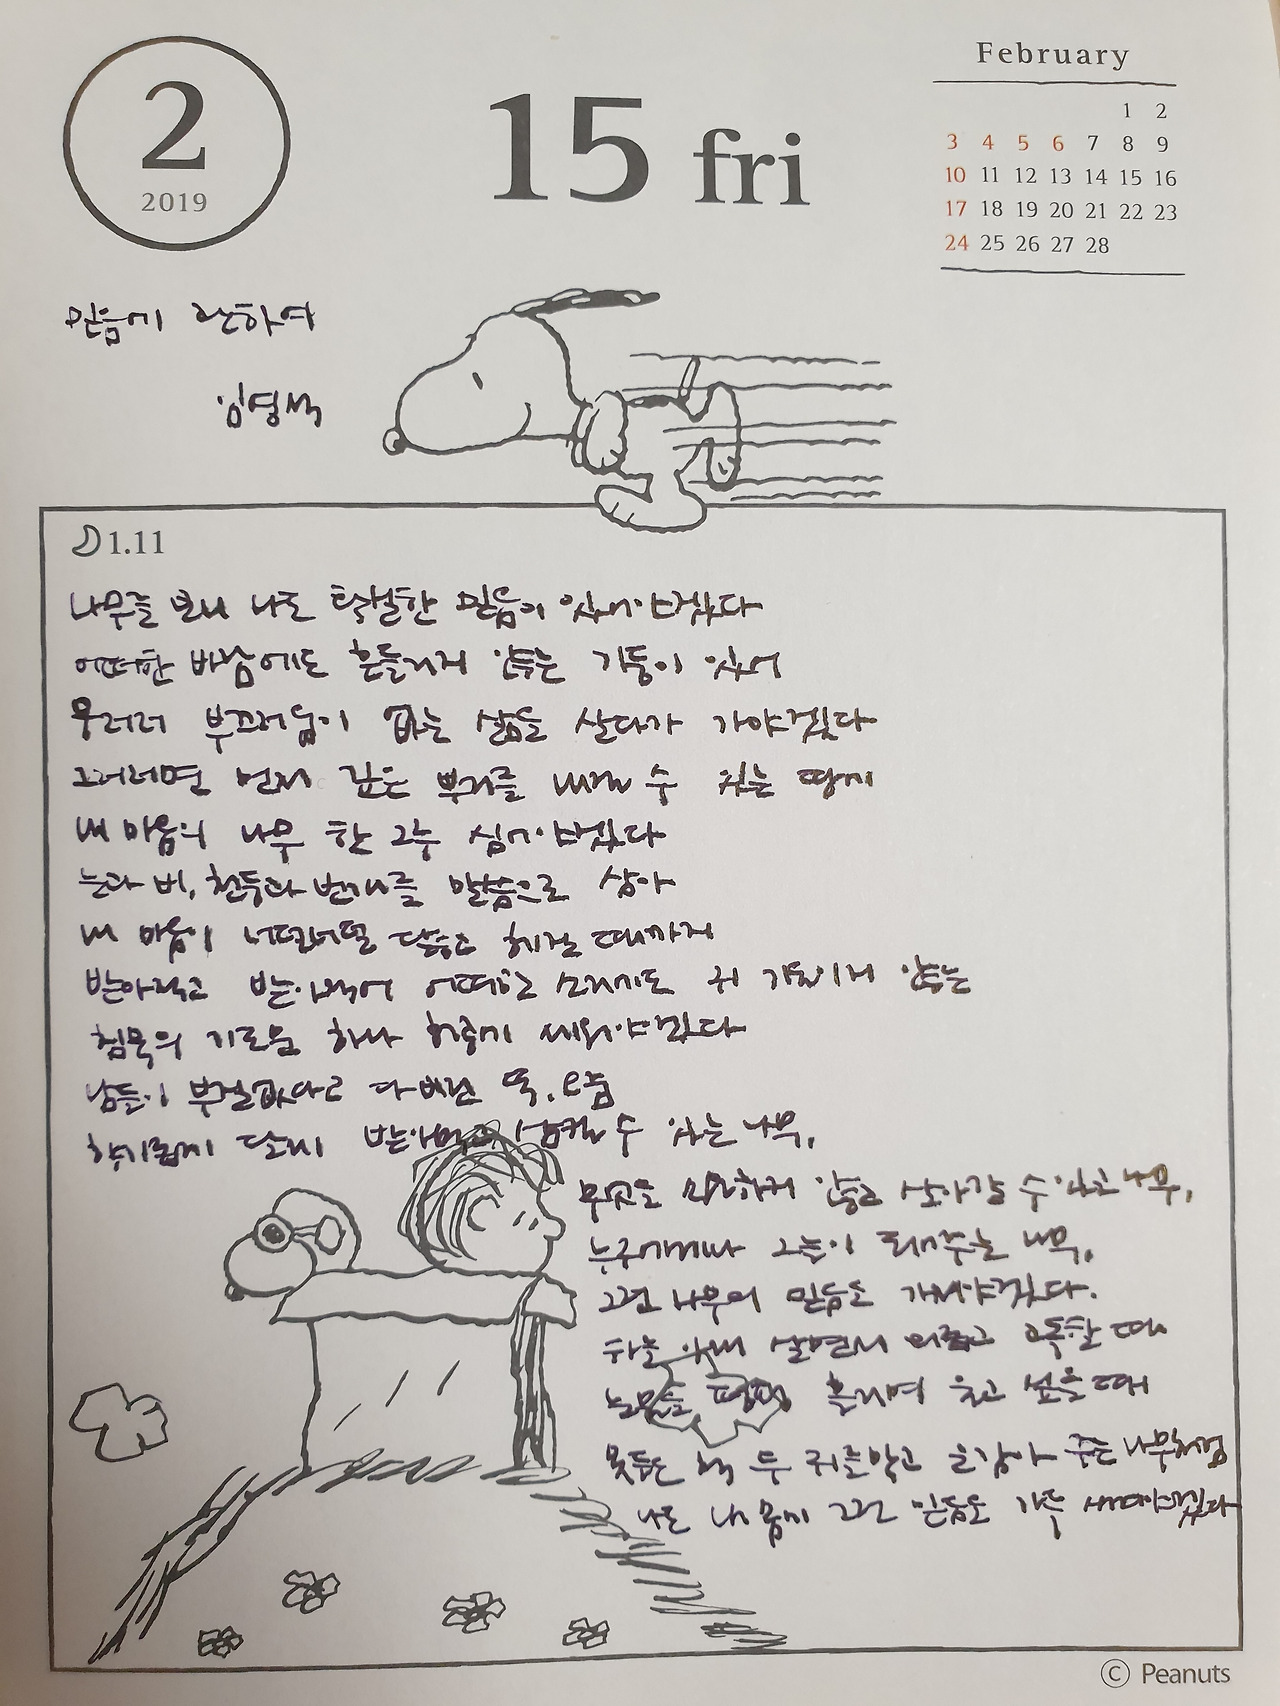 2
2019
15 fri
February
1 2
3 4 5 6 7 8 9
10 11 12 13 14 15 16
17 18 19 20 21 22 23
24 25 26 27 28
믿음에 관하여
임영석
1.11
나무를 보니 나도 확실한 믿음이 있어야겠다
어떠한 바람에도 흔들리지 않는 기둥이 있어
우러러 부끄러움이 없는 삶을 살다가 가야겠다
그러려면 먼저 깊은 뿌리를 내릴 수 있는 땅에
내 마음의 나무 한 그루 심어야겠다
눈과 비, 천둥과 번개를 말씀으로 삼아
내 마음이 너덜너덜 닳고 헤질 때까지
받아적고 받아적어 어떠한 소리에도 귀 기울이지 않는
침묵의 기도문 하나 허공에 세워야겠다
남들이 부질없다고 다 버린 똑,
향기롭게 달게 받아먹고 삼킬 수 있는 나무,
무엇을 원하지 않고 살아갈 수 있는 나무,
누구에게나 그늘이 되어주는 나무,
그런 나무의 믿음을 가져야겠다.
하늘 아래 살면서 외롭고 고독할 때
눈물을 펑펑 흘리며 울고 싶을 때
못들은 척 두 귀를 막고 눈감아 주는 나무처럼
나도 내 몸에 그런 믿음을 가득 새겨야겠다
© Peanuts